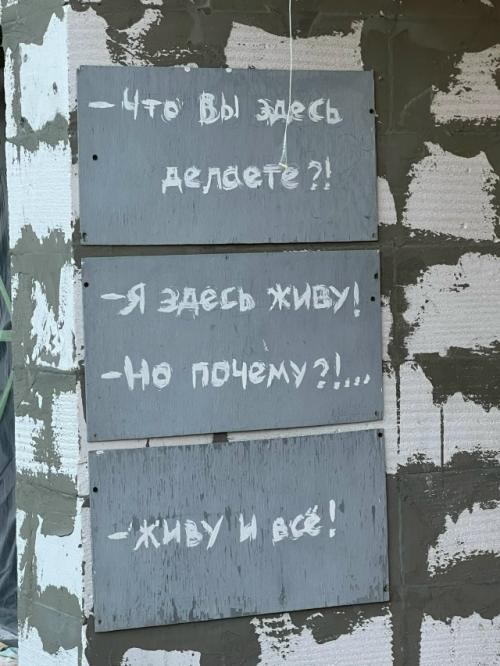 - Что Вы здесь
делаете?!
- Я здесь живу!
- Но почему?!...
- живу и всё!